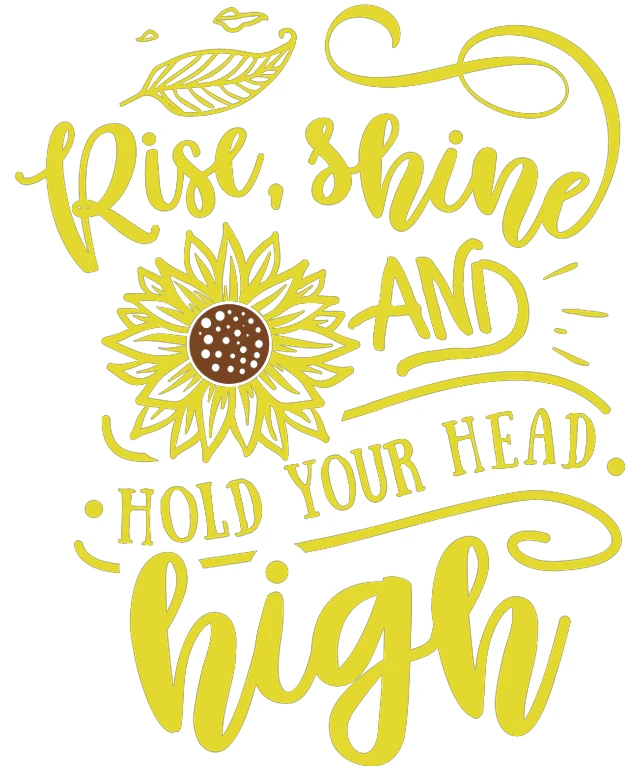 Rise, shine
AND
HOLD YOUR HEAD
high